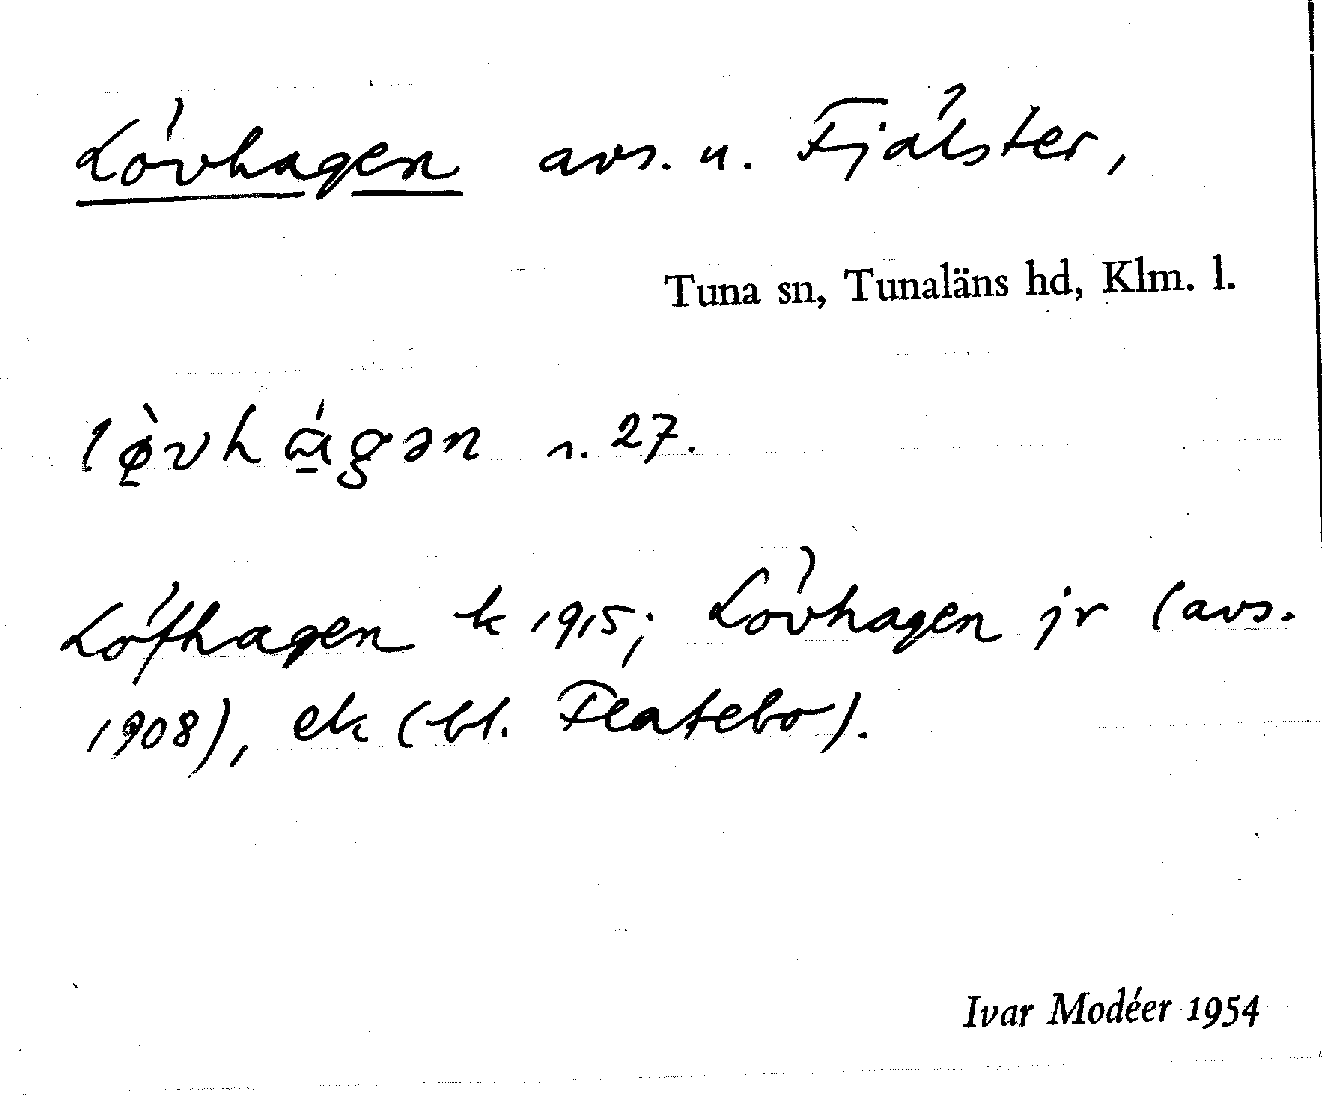 Lövhagen avs. u. Fjälster,
Tuna sn, Tunaläns hd, Klm. l.
lø̀vhágən n. 27.
Löfhagen k 1915; Lövhagen jr (avs.
1908), ek (bl. Flatebo).
Ivar Modéer 1954